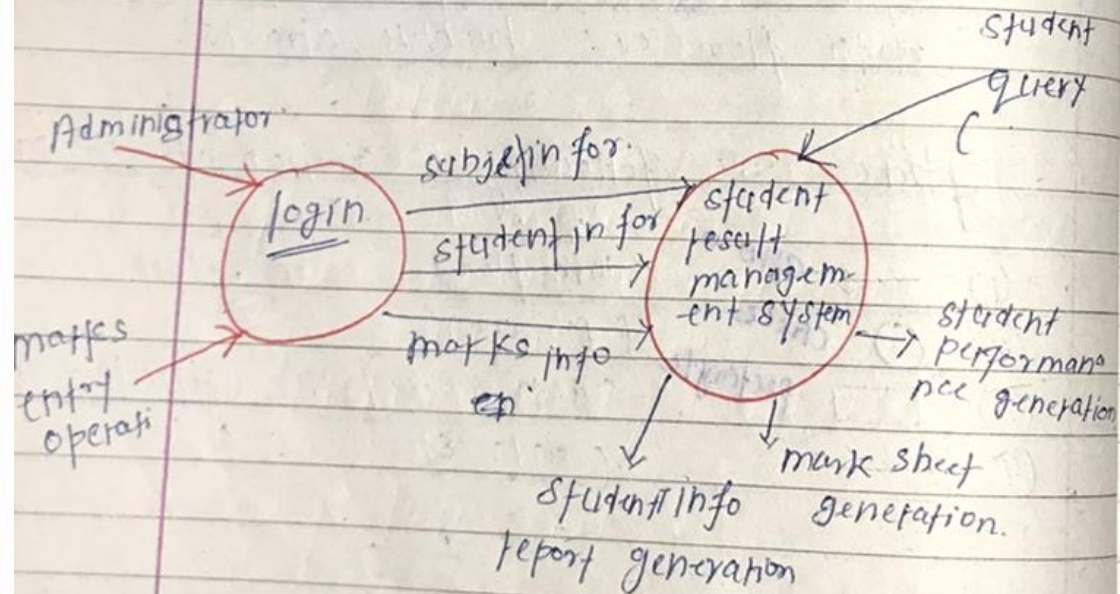 student
query
(
Administrator
login
subject infor.
student infor
marks info
en
student
result
managem-
ent system
marks
entry
operati
student
performana
nce generation
mark sheet
generation.
student info
report generation